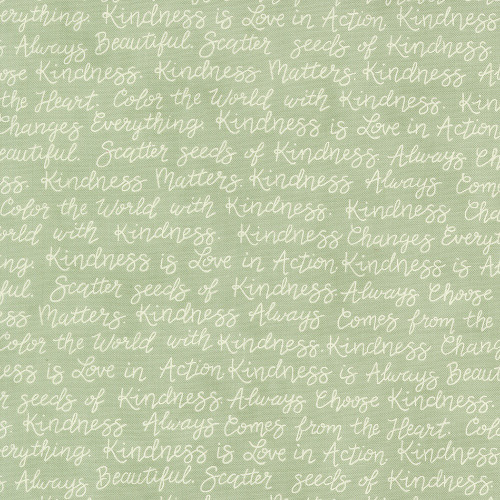 erything. Kindness is Love in Action Kindness
s Always Beautiful. Scatter seeds of Kindness
ose Kindness. Kindness Matters. Kindness A
the Heart. Color the World with Kindness. Kin
Changes Everything. Kindness is Love in Action
eautiful. Scatter seeds of Kindness. Always Ch
ss. Kindness Matters. Kindness Always Com
Color the World with Kindness. Kindness Cha
orld with Kindness. Kindness Changes Every
ng. Kindness is Love in Action Kindness is A
ful. Scatter seeds of Kindness Always Choose
ess Matters Kindness Always Comes from the
Color the World with Kindness. Kindness Chang
ess is Love in Action Kindness is Always Beaut
r seeds of Kindness Always Choose Kindness
s. Kindness Always Comes from the Heart. Col
erything. Kindness is Love in Action. Kindness
s Always Beautiful. Scatter seeds of Kindness